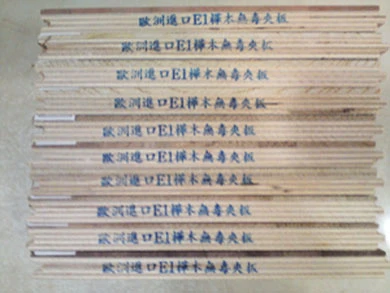 歐洲進口E1樺木無毒夾板
歐洲進口E1樺木無毒夾板
歐洲進口E1樺木無毒夾板
歐洲進口E1樺木無毒夾板
歐洲進口E1樺木無毒夾板
歐洲進口E1樺木無毒夾板
歐洲進口E1樺木無毒夾板
歐洲進口E1樺木無毒夾板
歐洲進口E1樺木無毒夾板
歐洲進口E1樺木無毒夾板